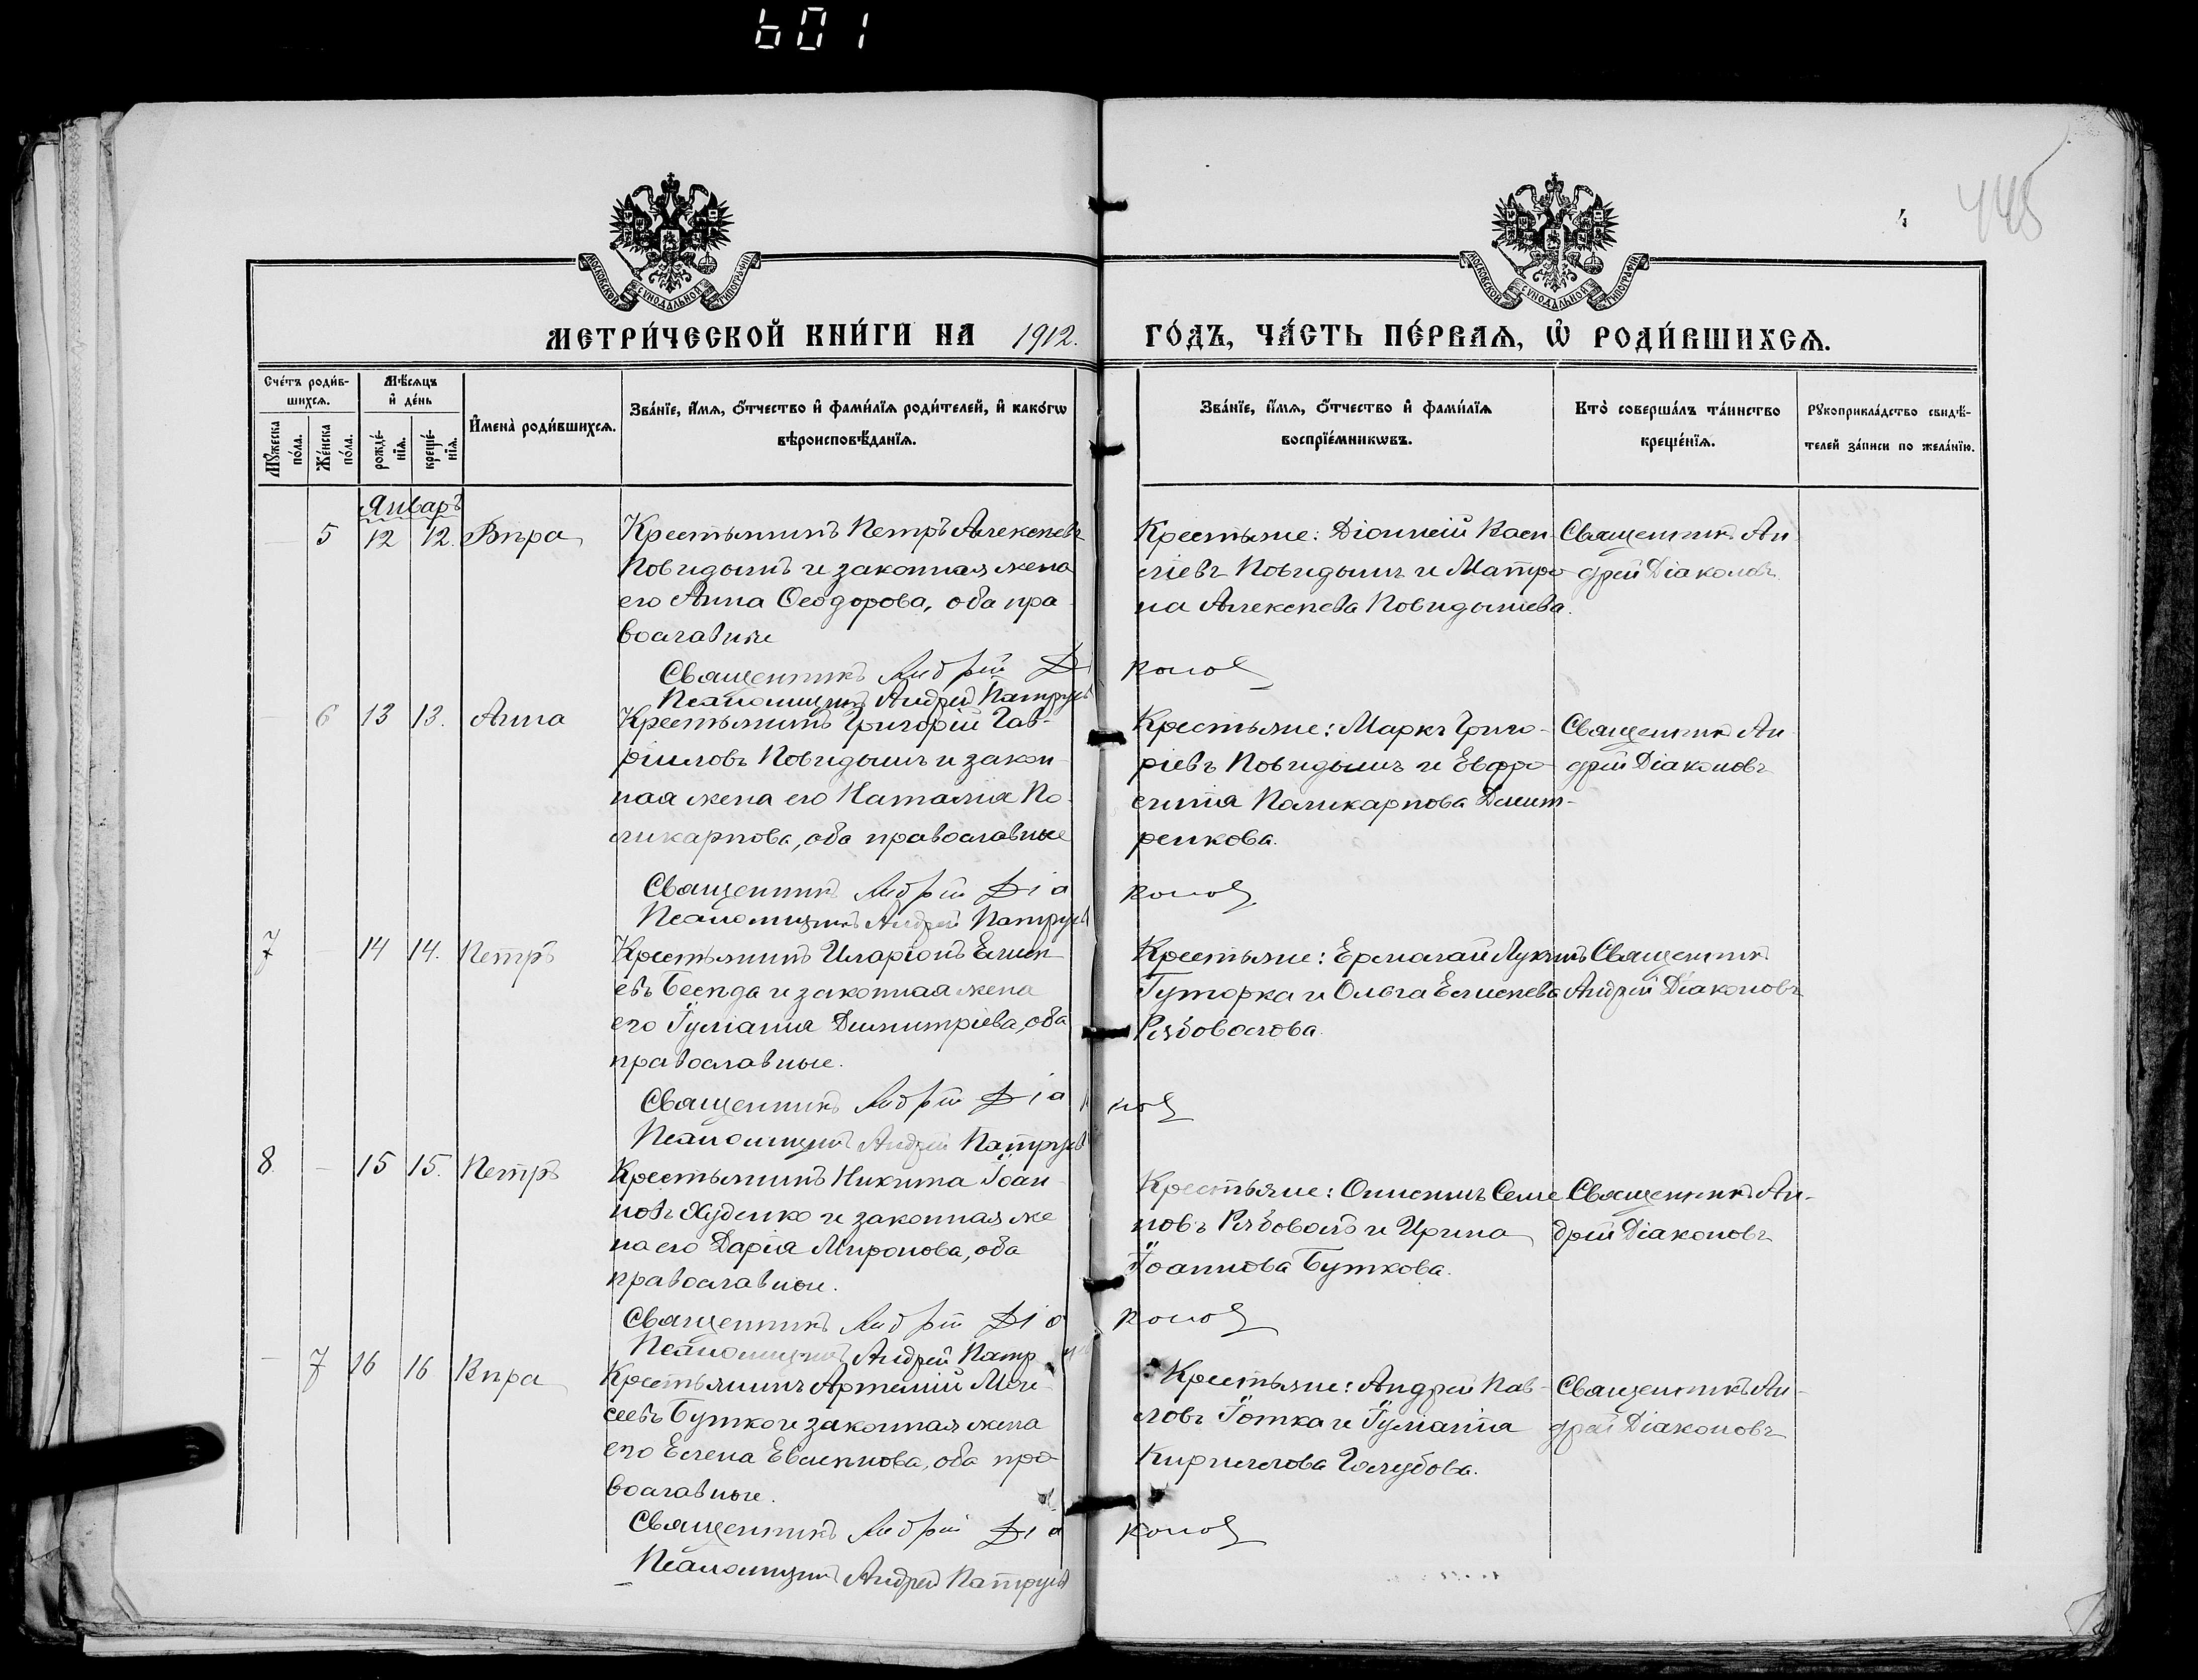 601
445
4
МОСКОВСКОЙ СѴНОДАЛЬНОЙ ТИПОГРАФІИ
МОСКОВСКОЙ СѴНОДАЛЬНОЙ ТИПОГРАФІИ
МЕТРИ́ЧЕСКОЙ КНИ́ГИ НА 1912. ГО́ДЪ, ЧА́СТЬ ПЕ́РВАѦ, Ѽ РОДИ́ВШИХСѦ.
Сче́тъ роди́в-
шихсѧ.
Мѣ́сѧцъ
и҆ де́нь
Мꙋ́жеска по́ла.
Же́нска по́ла.
рожде́-
нїѧ.
креще́-
нїѧ.
И҆мена̀ роди́вшихсѧ.
Зва́нїе, и҆́мѧ, ѻ҆́тчество и҆ фами́лїѧ роди́телей, и҆ како́гѡ
вѣроисповѣ́данїѧ.
Зва́нїе, и҆́мѧ, ѻ҆́тчество и҆ фами́лїѧ
воспрїе́мникѡвъ.
Кто̀ соверша́лъ та́инство
креще́нїѧ.
Рꙋкоприкла́дство свидѣ́-
телей за́писи по жела́нїю.
Январь
5 12 12. Вѣра
Крестьянинъ Петръ Алексѣевъ
Повидышъ и законная жена
его Анна Ѳеодорова, оба пра
вославные
Крестьяне: Діонисій Васи-
ліевъ Повидышъ и Матро
на Алексѣева Повидышева.
Священникъ Ан
дрей Діаконовъ
Священникъ Андрей Діаконов
Псаломщикъ Андрей Патруев
6 13 13. Анна
Крестьянинъ Григорій Гав-
ріиловъ Повидышъ и закон
ная жена его Наталія По
ликарпова, оба православные
Крестьяне: Маркъ Григо-
ріевъ Повидышъ и Евфро
синія Поликарпова Дмит-
ренкова.
Священникъ Ан
дрей Діаконовъ
Священникъ Андрей Діаконов
Псаломщикъ Андрей Патруев
7 14 14. Петръ
Крестьянинъ Иларіонъ Елисѣ
евъ Бесѣда и законная жена
его Іуліанія Димитріева, оба
православные.
Крестьяне: Ермолай Лукинъ
Гуторка и Ольга Елисѣева
Рябоволова.
Священникъ
Андрей Діаконовъ
Священникъ Андрей Діаконов
Псаломщикъ Андрей Патруев
8 15 15. Петръ
Крестьянинъ Никита Іоан
новъ Худенко и законная же
на его Дарія Миронова, оба
православные.
Крестьяне: Онисимъ Семе
новъ Рябоволъ и Ирина
Іоаннова Буткова.
Священникъ Ан-
дрей Діаконовъ
Священникъ Андрей Діаконов
Псаломщикъ Андрей Патруев
7 16 16 Вѣра
Крестьянинъ Артемій Мои-
сеевъ Бутко и законная жена
его Елена Евсикнова, оба пра
вославные.
Крестьяне: Андрей Пав-
ловъ Іотка и Іуліанія
Кириллова Голубова.
Священникъ Ан-
дрей Діаконовъ
Священникъ Андрей Діаконов
Псаломщикъ Андрей Патруев